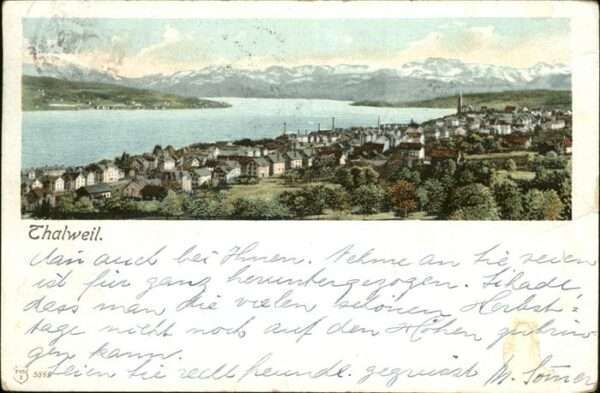 Thalweil.
auch bei Ihnen. Nehme an Sie seien
ist für ganz heruntergezogen. Schade
dass man die vielen schönen Herbst-
tage nicht noch auf den Höhen zubrin-
gen kann.
Seien Sie recht freundl. gegrüsst M.